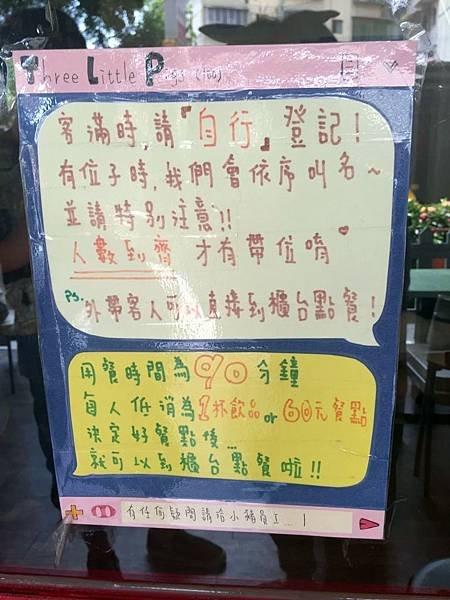 Three Little Pigs
客滿時,請「自行」登記!
有位子時,我們會依序叫名~
並請特別注意!!
人數到齊 才有帶位唷♥
PS. 外帶客人可以直接到櫃台點餐!
用餐時間為90分鐘
每人低消為1杯飲品or 60元餐點
決定好餐點後...
就可以到櫃台點餐啦!!
有任何疑問請洽小豬員工...